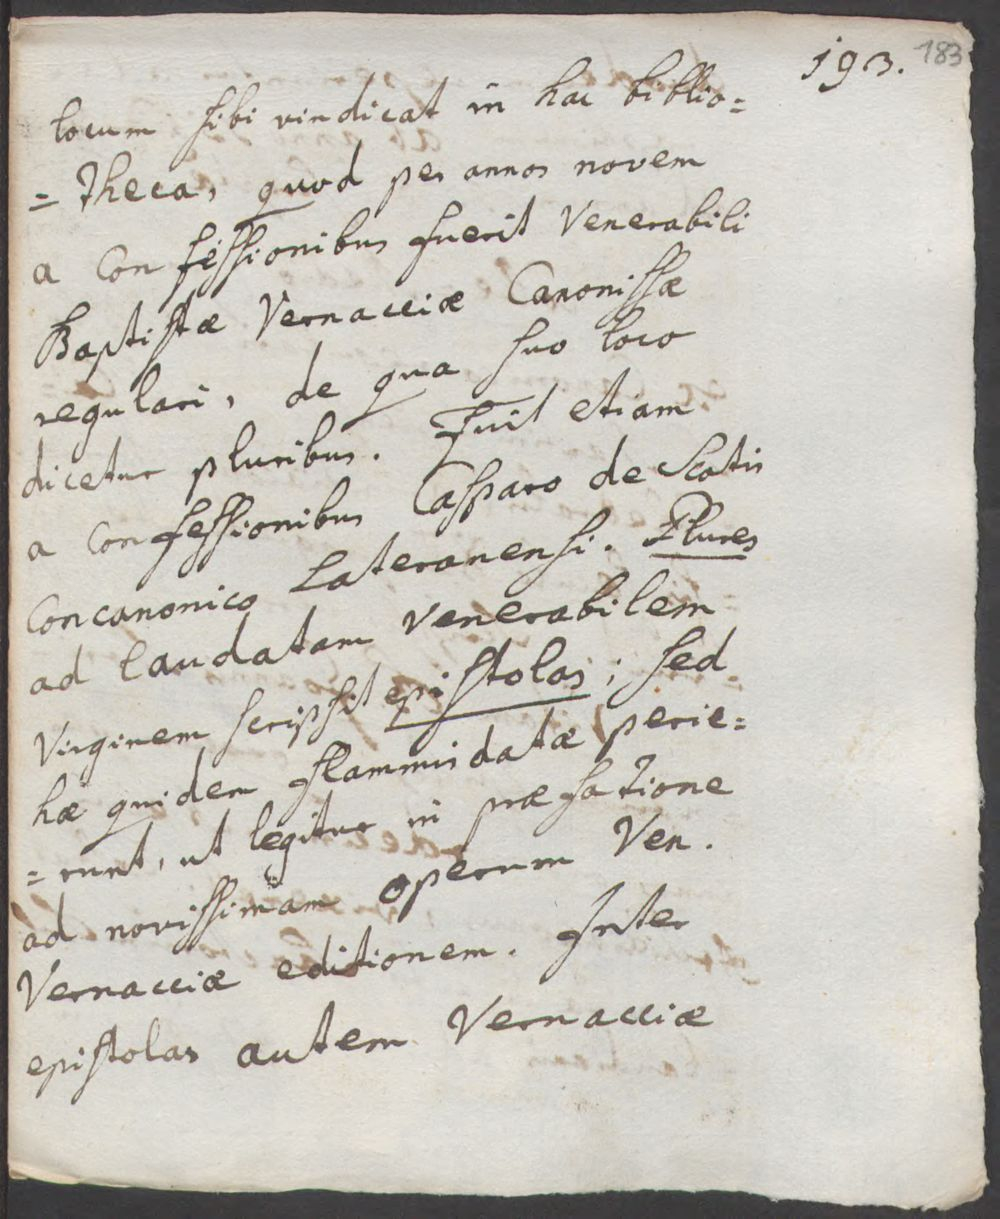 193. 183
locum sibi vindicat in hac biblio=
=theca, quod per annos novem
a Confessionibus fuerit Venerabili
Baptistæ Vernacciæ Canonissæ
regulari, de qua suo loco
dicetur pluribus. Fuit etiam
a Confessionibus Casparo de Scotis
Concanonico Lateranensi. Plures
ad laudatam Venerabilem
Virginem scripsit epistolas; sed
hæ quidem flammis datæ perie=
=runt, ut legitur in præfatione
ad novissimam operum Ven.
Vernacciæ editionem. Inter
epistolas autem Vernacciæ